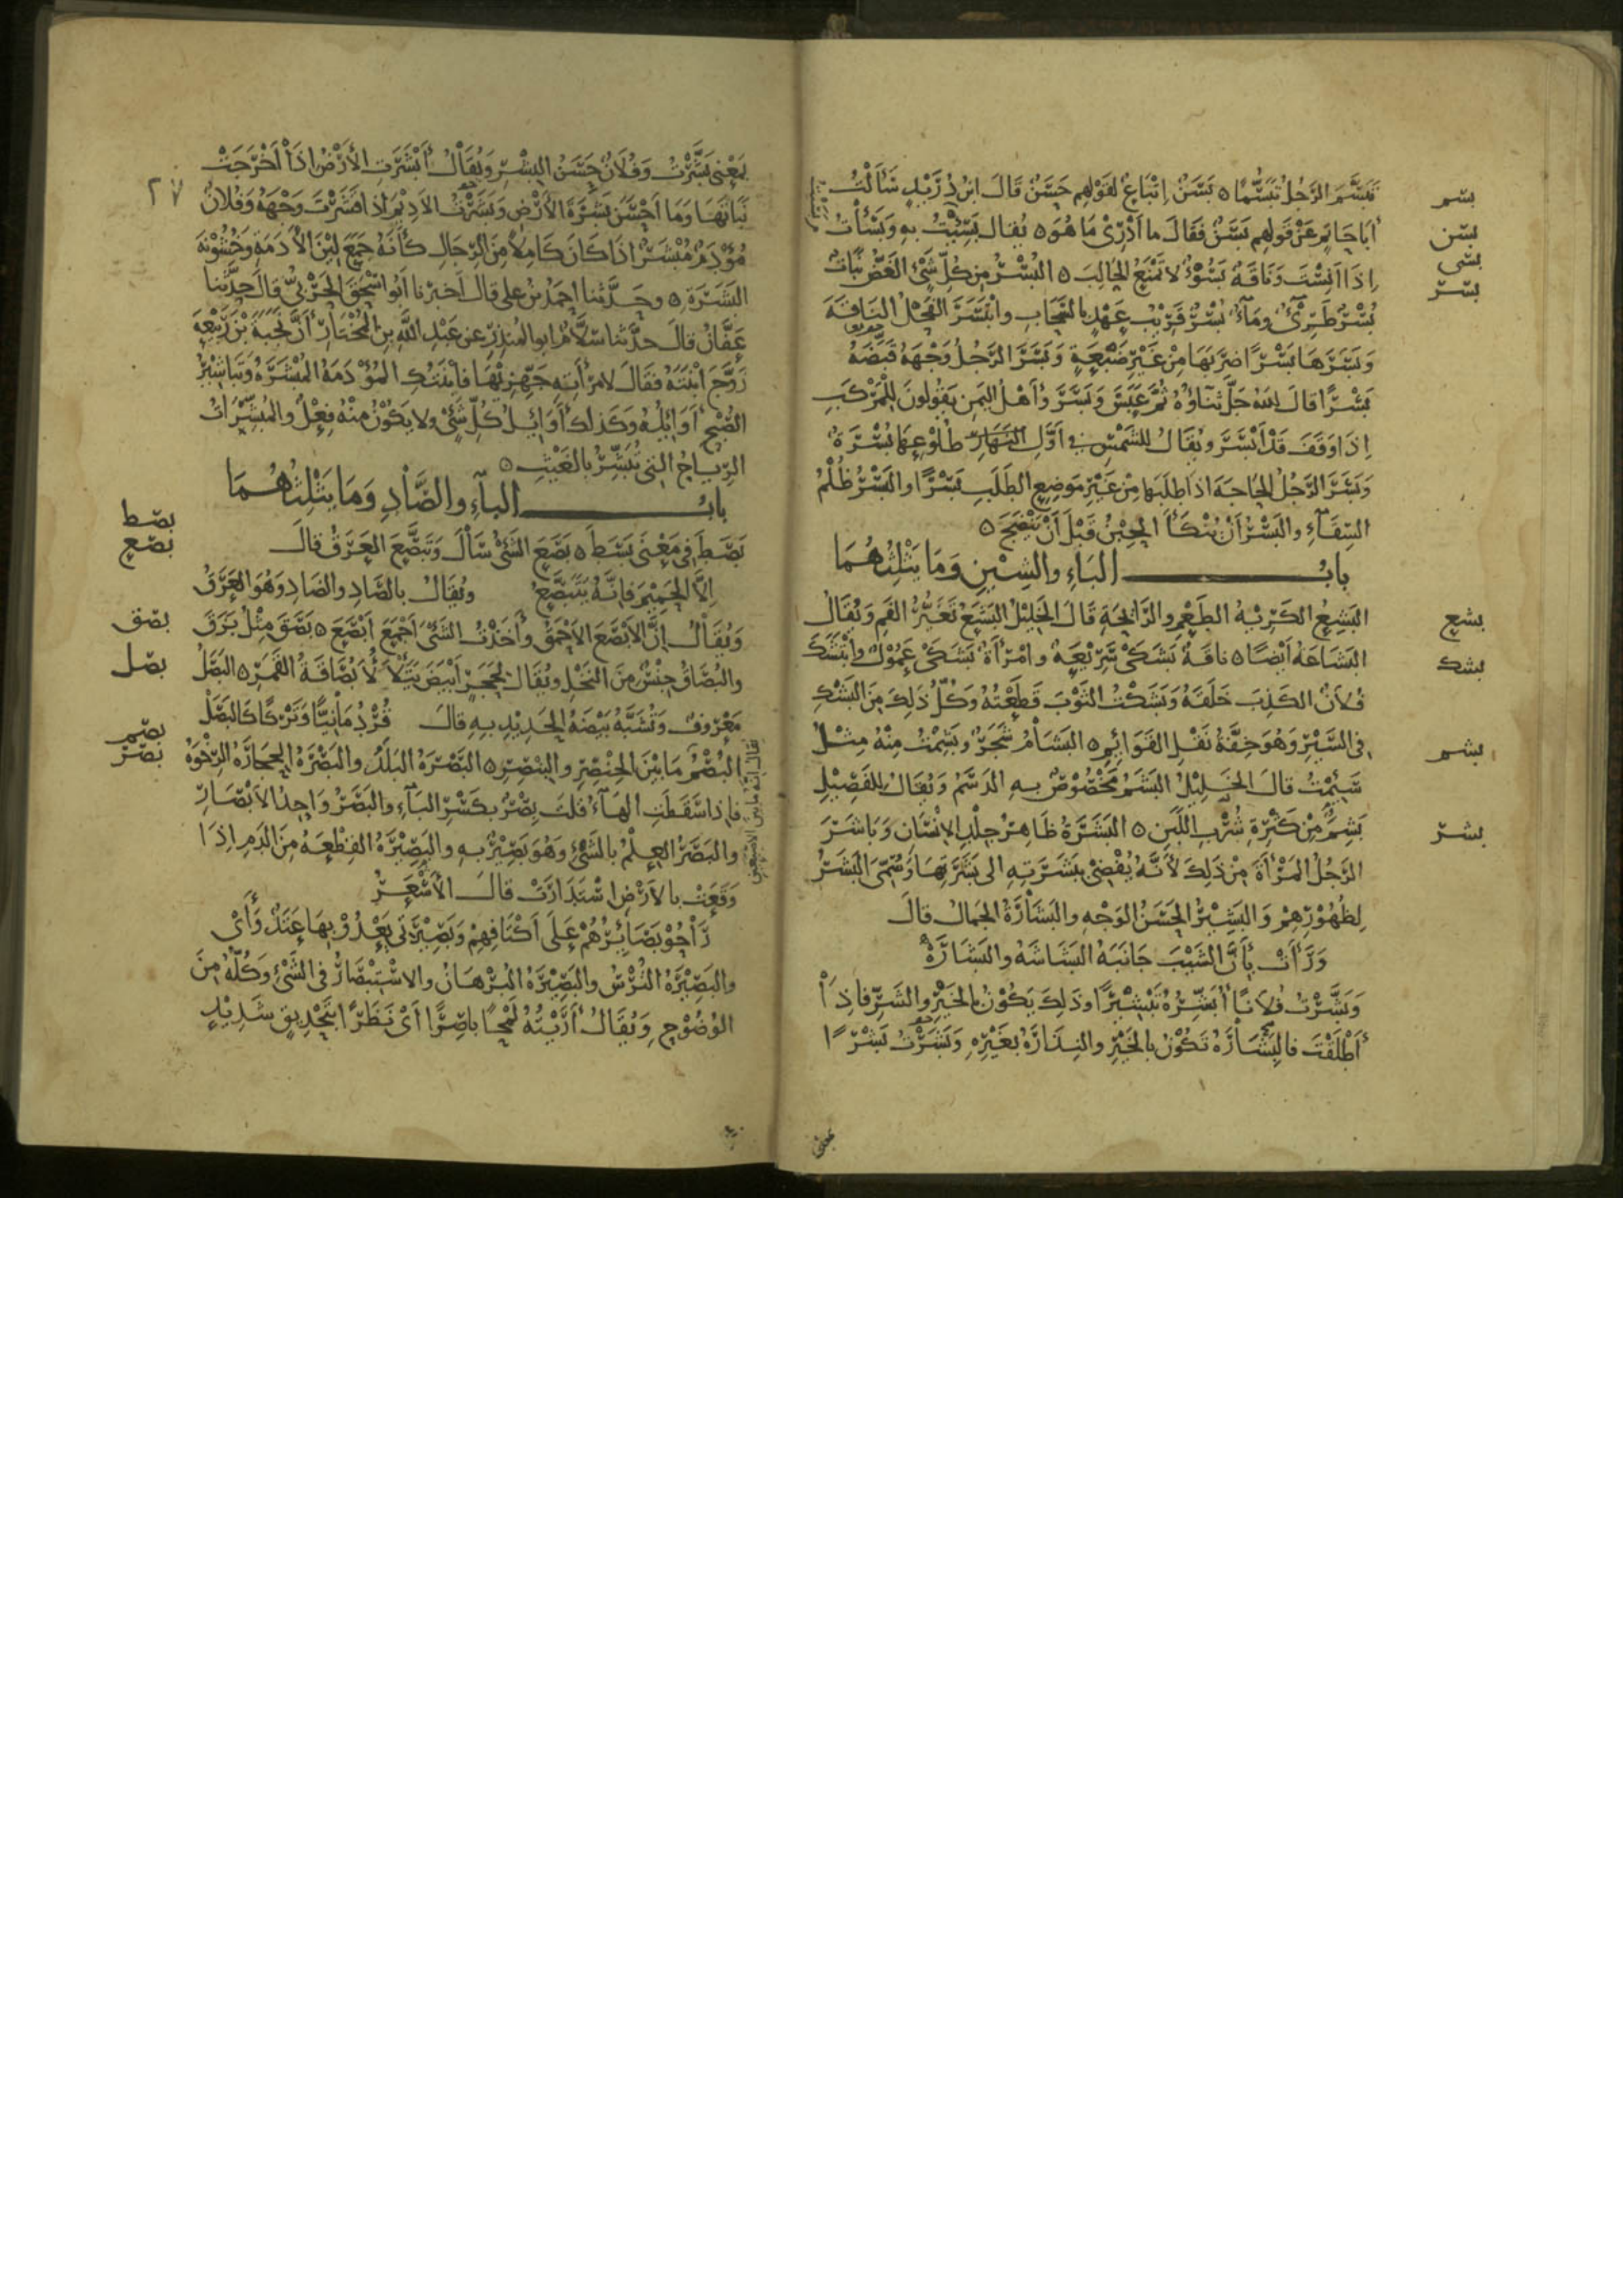 بسم
تَبَسَّمَ الرَّجُلُ تَبَسُّمًا ه بَسَنٌ اِتْبَاعٌ لقَوْلِهِم حَسَنٌ قَالَ ابْنُ دُرَيْدٍ سَأَلْتُ
بسن
أَبَا حَاتِمٍ عَنْ قَولِهِم بَسَنٌ فَقَالَ ما أَدْرِيْ مَا هُوَ ه يُقال بَسِئْتُ بِهِ وَبَسَأْتُ
بسى
اِذَا اَنِسْتَ وَنَاقَةٌ بَسُوْءٌ لا تَمْنَعُ الحَالِبَ ه البُسْرُ مِن كُلِّ شَيْءٍ الغَضُّ نَبَاتٌ
بسر
بُسْرٌ طَرِيٌّ وَمآءٌ بُسْرٌ قَرِيْبُ عَهْدٍ بالسَّحَابِ وابْتَسَرَ الفَحْلُ النَاقَةَ
وَبَسَرَهَا بَسْرًا ضَرَبَهَا مِنْ غَيْرِ ضَبَعَةٍ وَبَسَرَ الرَّجُلُ وَجْهَهُ قَبَضَهُ
بَسْرًا قالَ اللهُ جَلَّ ثَنَاؤُهُ ثُمَّ عَبَسَ وَبَسَرَ وَأَهْلُ اليَمَنِ يَقُولُونَ لِلْمَرْكَبِ
اِذَا وَقَفَ قَدْ أَبْسَرَ ويُقَالُ للشَّمْسِ في أَوَّلِ النَّهَارِ طُلُوْعِهَا بُسْرَةٌ
وَبَسَرَ الرَّجُلُ الحَاجَةَ اذَا طَلَبَهَا مِنْ غَيْرِ مَوضِعِ الطَلَبِ بَسْرًا والبَسْرُ ظُلْمُ
السِّقَآءِ والبَسْرُ أَنْ يُنْكَأَ الحِبْنُ قَبْلَ أَنْ يَنْضَجَ ه
بابُ البَاءِ والشِيْنِ وَمَا يَثْلِثُهُمَا
بشع
البَشِعُ الكَرِيْهُ الطَعْمِ والرَّائِحَةِ قَالَ الخَلِيْلُ البَشَعُ تَغَيُّرُ الفَمِ وَيُقَالُ
بشك
البَشَاعَهُ أَيْضًا ه ناقَةٌ بَشَكَى سَرِيْعَةٌ وامْرَأَةٌ بَشَكَى عَمُوْلٌ وابْتَشَكَ
فُلَانٌ الكَذِبَ خَلَقَهُ وَبَشَكْتُ الثَوْبَ قَطَعْتُهُ وَكُلُّ ذَلِكَ مِنَ البَشْكِ
بشم
فى السَّيْرِ وَهُوَ خِفَّةُ نَقْلِ القَوَائِمِ ه البَشَامُ شَجَرٌ وبَشِمْتُ مِنْهُ مِثْلُ
سَئِمْتُ قالَ الخَلِيْلُ البَشَمُ مَخْصُوْصٌ بِهِ الدَسَمُ وَيُقَالُ لِلفَصِيْلِ
بشر
بَشِمَ مِنْ كَثْرَةِ شُرْبِ اللَبَنِ ه البَشَرَةُ ظَاهِرُ جِلْدِ الإِنْسَانِ وَبَاشَرَ
الرَّجُلُ المَرْأَةَ مِنْ ذَلِكَ لأَنَّهُ يُفْضِي بِبَشَرَتِهِ الى بَشَرَتِهَا وَسُمِّيَ البَشَرُ
لِظُهُوْرِهِمْ وَالبَشِيْرُ الحَسَنُ الوَجْهِ والبَشَارَةُ الجَمَالُ قالَ
وَرَأَتْ بِأَنَّ الشَيْبَ جَانَبَهُ البَشَاشَةُ والبَشَارَةُ
وَبَشَّرْتُ فُلانًا أُبَشِّرُهُ تَبْشِيْرًا وذَلِكَ يَكُوْنُ بِالخَيْرِ والشَرِّ فاذَا
أَطْلَقْتَ فالبِشَارَةُ تَكُوْنُ بالخَيْرِ والنِذَارَةُ بِغَيْرِهِ وَبَشَرْتُ بَشْرًا
٢٧
بِمَعْنَى بَشَّرْتُ وَفُلَانٌ حَسَنُ البِشْرِ وَيُقَالُ أَبْشَرَتِ الأَرْضُ اذَا أَخْرَجَتْ
نَبَاتَهَا وَمَا اَحْسَنَ بَشَرَةَ الأَرْضِ وَبَشَرْتُ الأَدِيْمَ اِذَا قَشَرْتَ وَجْهَهُ وَفُلانٌ
مُؤْدَمٌ مُبْشَرٌ اذَا كَانَ كَامِلًا مِنَ الرِّجَالِ كَأَنَّهُ جَمَعَ لِيْنَ الأَدَمَةِ وَخُشُوْنَةَ
البَشَرَةِ ه وحَدَّثَنا احمَدُ بنُ عَلِي قالَ أَخبرنا أبُوا سْحٰقَ الحَرْبيُّ قالَ حدَّثَنا
عَفَّانُ قالَ حدَّثنا سَلَّامُ ابو المُنذِرِ عن عَبْدِ اللَّهِ بنِ المُخْتَارِ أَنَّ نُجَبَةَ بْنَ رَبِيْعَةَ
زَوَّجَ ابْنَتَهُ فَقَالَ لامْرَأَتِهِ جَهِّزِيْهَا فَابْنَتُكِ المُؤْدَمَةُ المُبْشَرَةُ وَتَبَاشِيْرُ
الصُّبْحِ أَوَائِلُهُ وَكَذلِكَ أَوَائِلُ كُلِّ شَيْءٍ ولا يَكُوْنُ مِنْهُ فِعْلٌ والمُبَشِّرَاتُ
الرِّيَاحُ التى تُبَشِّرُ بالغَيْثِ ه
بابُ البآءِ والصَّادِ وَمَا يَثْلِثُهُمَا
بصط
بَصَطَ فِي مَعْنَى بَسَطَ ه بَصَعَ الشَيْءُ سَالَ وَتَبَصَّعَ العَرَقُ قالَ
بصع
اِلَّا الحَمِيْمَ فَاِنَّهُ يَتَبَصَّعُ ويُقَالُ بالصَّادِ والضَادِ وَهُوَ العَرَقُ
بصق
وَيُقَالُ اِنَّ الأَبْصَعَ الأَحْمَقُ وأَخَذْتُ الشَيْءَ أَجْمَعَ أَبْصَعَ ه بَصَقَ مِثْلُ بَزَقَ
بصل
والبُصَاقُ جِنْسٌ مِنَ النَخْلِ ويُقَالُ لِحَجَرٍ أَبْيَضَ يَتَلَأْلَأُ بُصَاقَةُ القَمَرِ ه البَصَلُ
مَعْرُوفٌ وَتُشَبَّهُ بَيْضَةُ الحَدِيْدِ بِهِ قالَ قُرْدُمَانِيًّا وَتَرْكًا كَالبَصَلْ
بصم
البُصْمُ مَا بَيْنَ الخِنْصِرِ والبِنْصِرِ ه البَصْرَةُ البَلَدُ والبَصْرَةُ الحِجَارَةُ الرِّخْوَةُ
بصر
فاِذا سَقَطَتِ الهَآءُ قُلْتَ بِصْرٌ بكَسْرِ البَآءِ والبَصَرُ وَاحِدُ الأَبْصَارِ
والبَصَرُ العِلْمُ بالشَيْءِ وَهُوَ بَصِيْرٌ بِهِ والبَصِيْرَةُ القِطْعَةُ مِنَ الدَمِ اِذَا
وَقَعَتْ بِالأَرْضِ اسْتَدَارَتْ قالَ الأَسْعَرُ
رَاحُوْ بَصَائِرُهُمْ عَلَى أَكْتَافِهِمْ وَبَصِيْرَتِي يَعْدُوْ بِهَا عَتَدٌ وَأَى
والبَصِيْرَةُ التُرْسُ والبَصِيْرَةُ البُرْهَانُ والاسْتِبْصَارُ فى الشَيْءِ وَكُلُّهُ مِنَ
الوُضُوْحِ وَيُقَالُ أَرَيْتُهُ لَمْحًا بَاصِرًا أَيْ نَظَرًا بِتَحْدِيقٍ شَدِيْدٍ